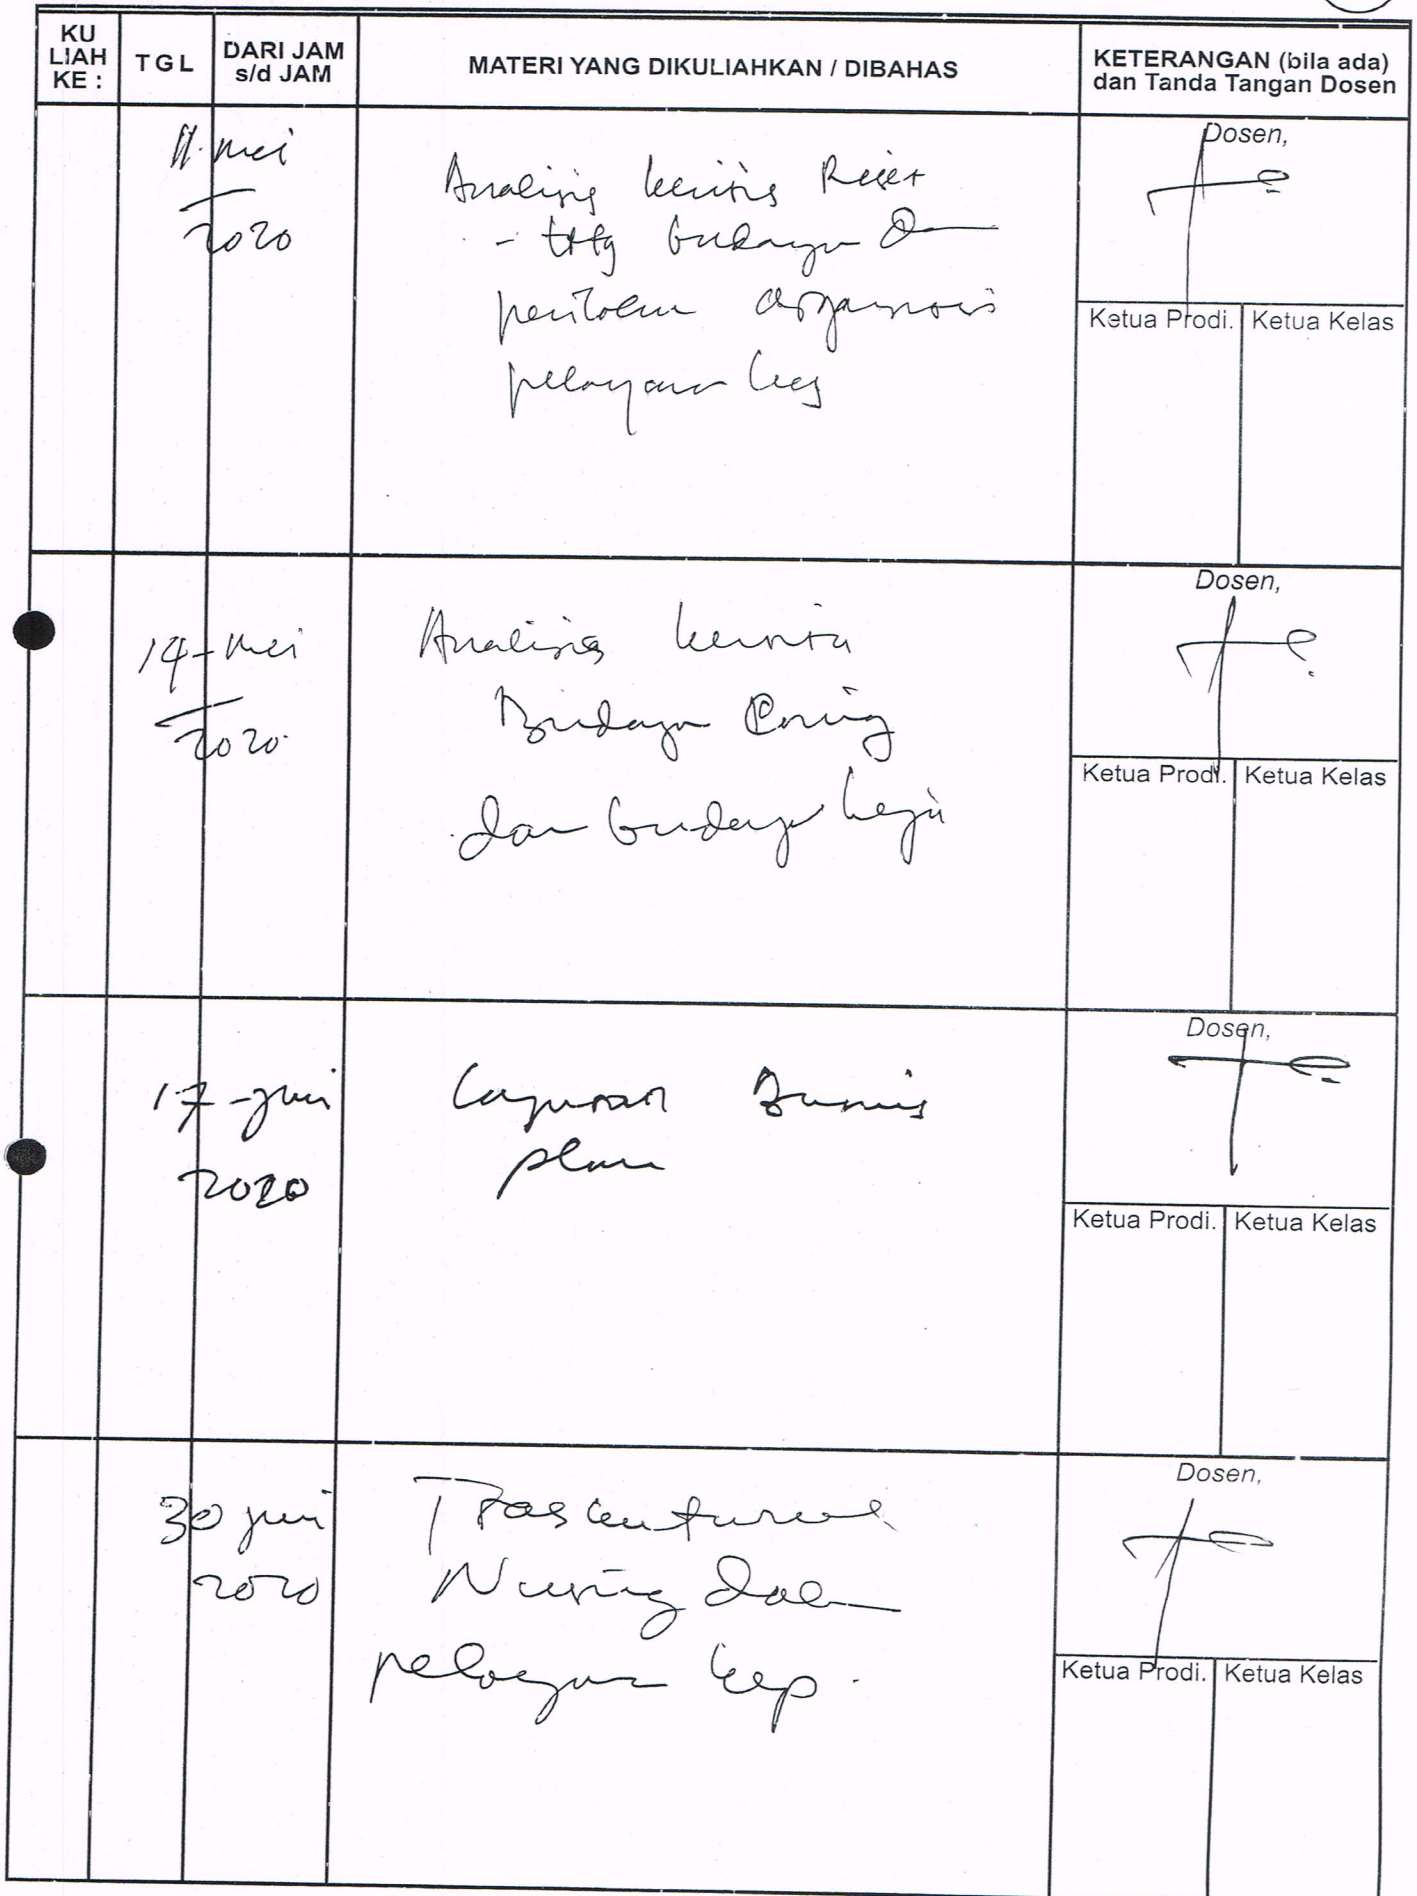 KU
LIAH
KE :
TGL
DARI JAM
s/d JAM
MATERI YANG DIKULIAHKAN / DIBAHAS
KETERANGAN (bila ada)
dan Tanda Tangan Dosen
11 mei
2020
Analisis kritis Riset
- ttg budaya
perilaku organisasi
pelayanan kes
Dosen,
Ketua Prodi. Ketua Kelas
14-mei
2020
Analisis
Budaya Caring
dan budaya kerja
Dosen,
Ketua Prodi. Ketua Kelas
17-juni
2020
Laporan Bisnis
plan
Dosen,
Ketua Prodi. Ketua Kelas
30 juni
2020
Nursing dalam
pelayanan kep.
Dosen,
Ketua Prodi. Ketua Kelas